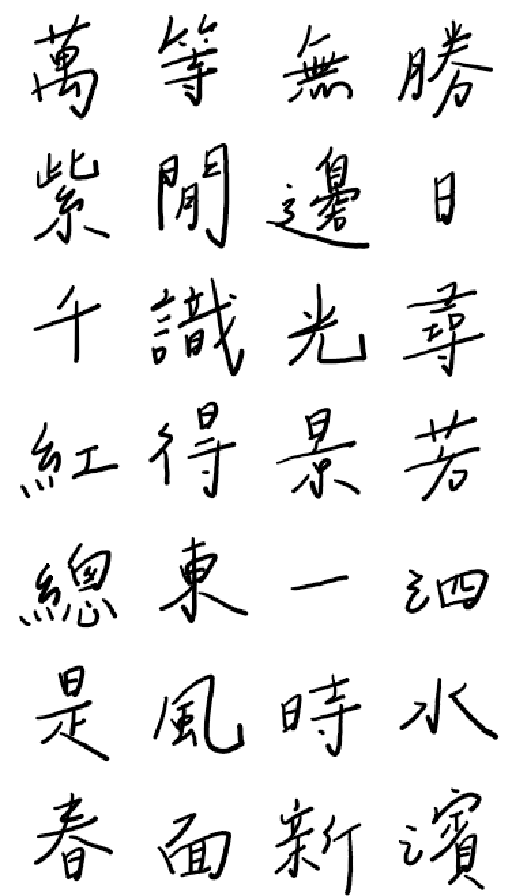 勝日尋芳泗水濱
無邊光景一時新
等閒識得東風面
萬紫千紅總是春